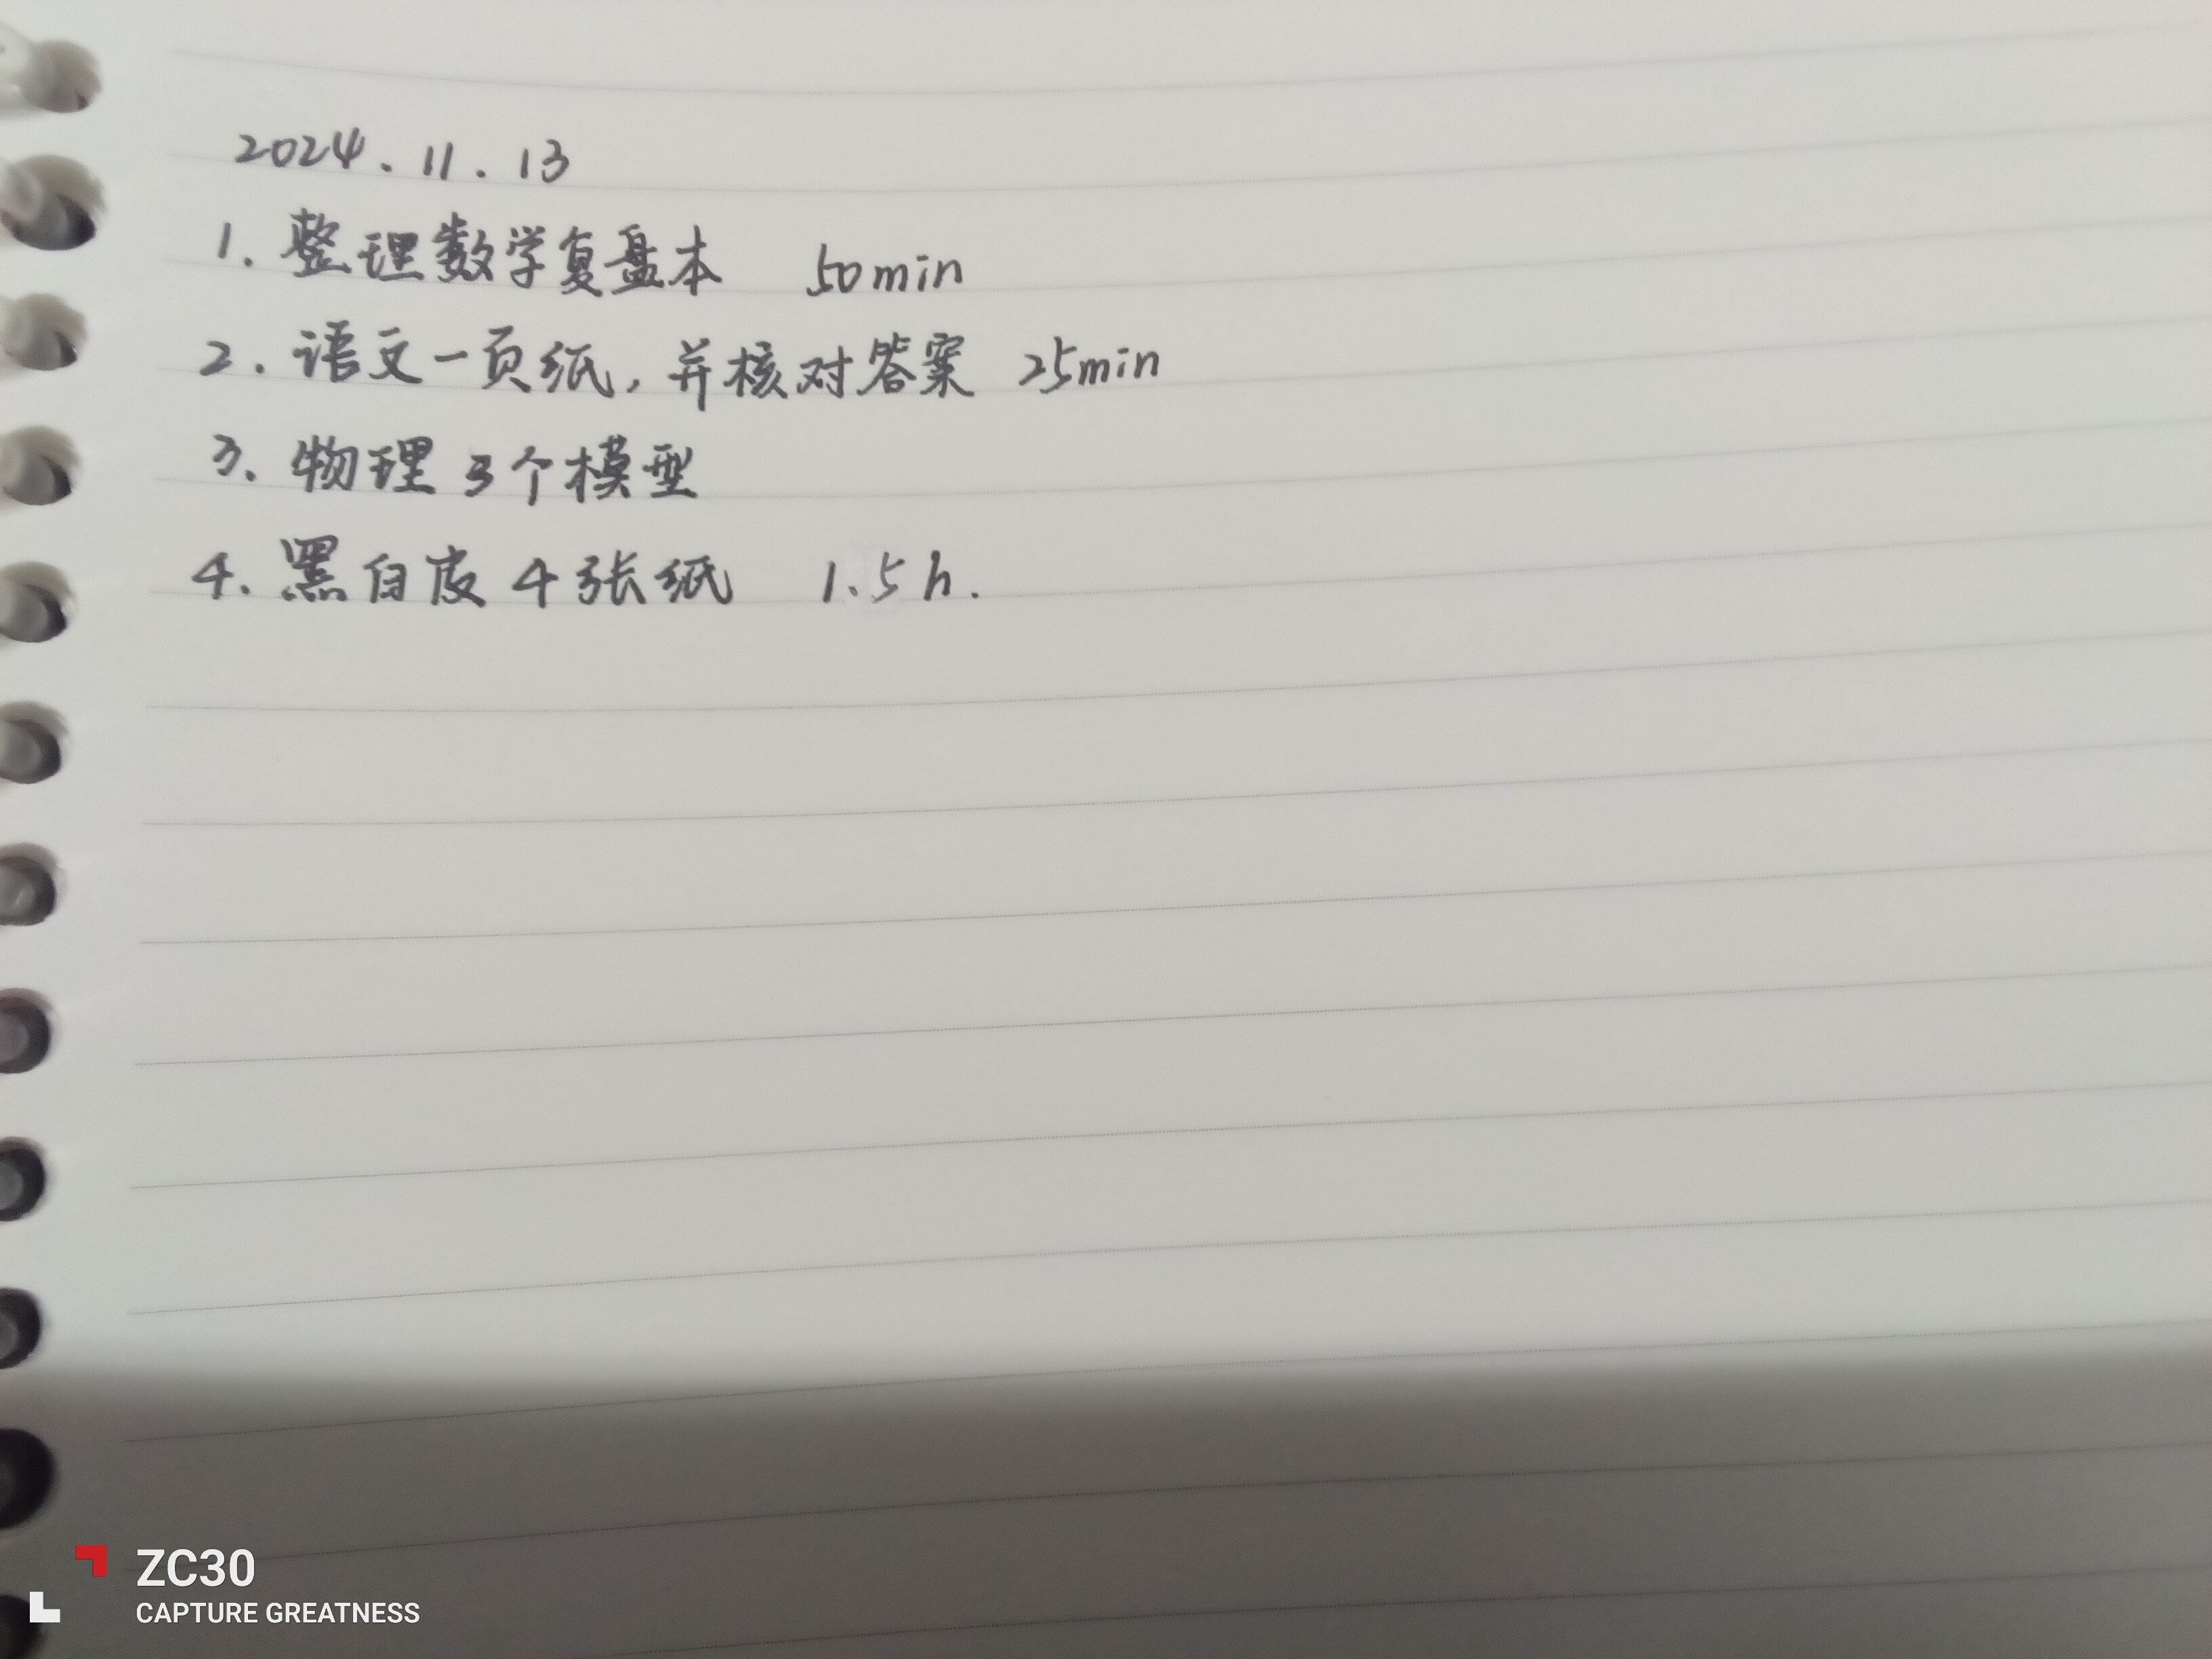 2024.11.13
1. 整理数学复盘本 50min
2. 语文一页纸,并核对答案 25min
3. 物理3个模型
4. 黑白皮4张纸 1.5h.
ZC30
CAPTURE GREATNESS